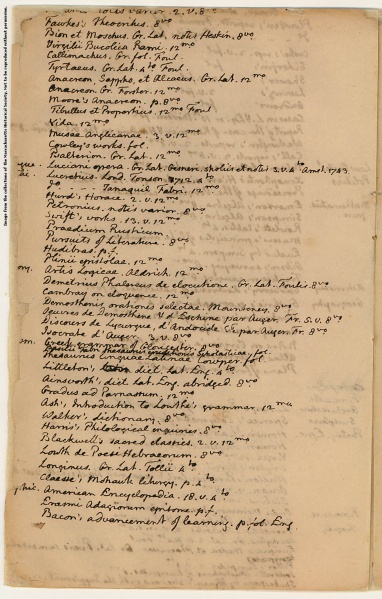 notis varior. 2. v. 8vo
Fawkes's Theocritus. 8vo
Bion et Moschus. Gr. Lat. notis Heskin. 8vo
Virgilii Bucolica Rami. 12mo
Callimachus. Gr. fol. Foul.
Tyrtaeus. Gr. Lat. 4to Foul.
Anacreon, Sappho, et Alcaeus. Gr. Lat. 12mo
Anacreon Gr. Forster. 12mo
Moore's Anacreon. p. 8vo
Tibullus et Propertius. 12mo Foul.
Vida. 12mo
Musae Anglicanae. 3. v. 12mo
Cowley's works. fol.
Psalterion. Gr. Lat. 12mo
Luciani opera. Gr. Lat. Gesneri, scholiis et notis 3. v. 4to Amst. 1743.
Lucretius. Lond. Tonson 1712. 4to
do - - - Tanaquil Fabri. 12mo
Hurd's Horace. 2. v. 12mo
Petronius. notis varior. 8vo
Swift's works. 13. v. 12mo
Praedium Rusticum.
Pursuits of Literature. 8vo
Hudibras. p. f.
Plinii epistolae. 12mo
Artis Logicae. Aldrich. 12mo
Demetrius Phalereus de elocutione. Gr. Lat. Foulis. 8vo
Cambray on eloquence. 12mo
Demosthenis orationes selectae. Mounteney. 8vo
Oeuvres de Demosthene & d'Eschine par Auger. Fr. 5. v. 8vo
Discours de Lycurgue, d'Andocide &c par Auger. Fr. 8vo
Isocrate d'Auger. 3. v. 8vo
Greek grammar of Gloucester. 8vo
Thesaurus Linguae Latinae Cowper fol.
Littleton's dict. Lat. Eng. 4to
Ainsworth's dict. Lat. Eng. abridged. 8vo
Gradus ad Parnassum. 12mo
Ash's Introduction to Lowthe's grammar. 12mo
Walker's dictionary. 8vo
Harris's Philological enquiries. 8vo
Blackwell's sacred classics. 2. v. 12mo
Lowth de Poesi Hebraeorum. 8vo
Longinus. Gr. Lat. Tollii 4to
Claesse's Mohawk liturgy. p. 4to
American Encyclopedia. 18. v. 4to
Erasmi Adagiorum epitome. p. f.
Bacon's advancement of learning. p. fol. Eng.